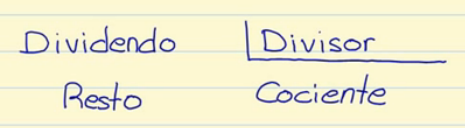 Dividendo Divisor
Resto Cociente